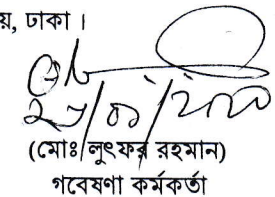 য়, ঢাকা।
(মোঃ লুৎফর রহমান)
গবেষণা কর্মকর্তা